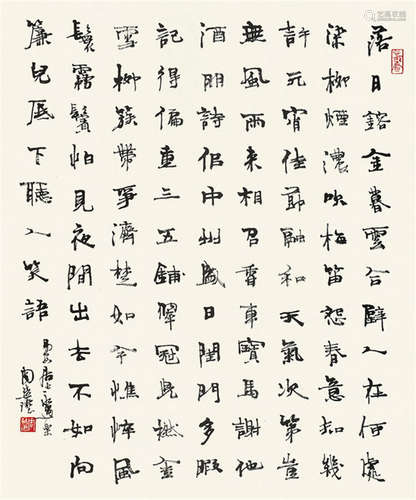 落日鎔金暮雲合璧人在何處
染柳煙濃吹梅笛怨春意知幾
許元宵佳節融和天氣次第豈
無風雨來相召香車寶馬謝他
酒朋詩侶中州盛日閨門多暇
記得偏重三五鋪翠冠兒撚金
雪柳簇帶爭濟楚如今憔悴風
鬟霧鬢怕見夜間出去不如向
簾兒底下聽人笑語
周慧珺